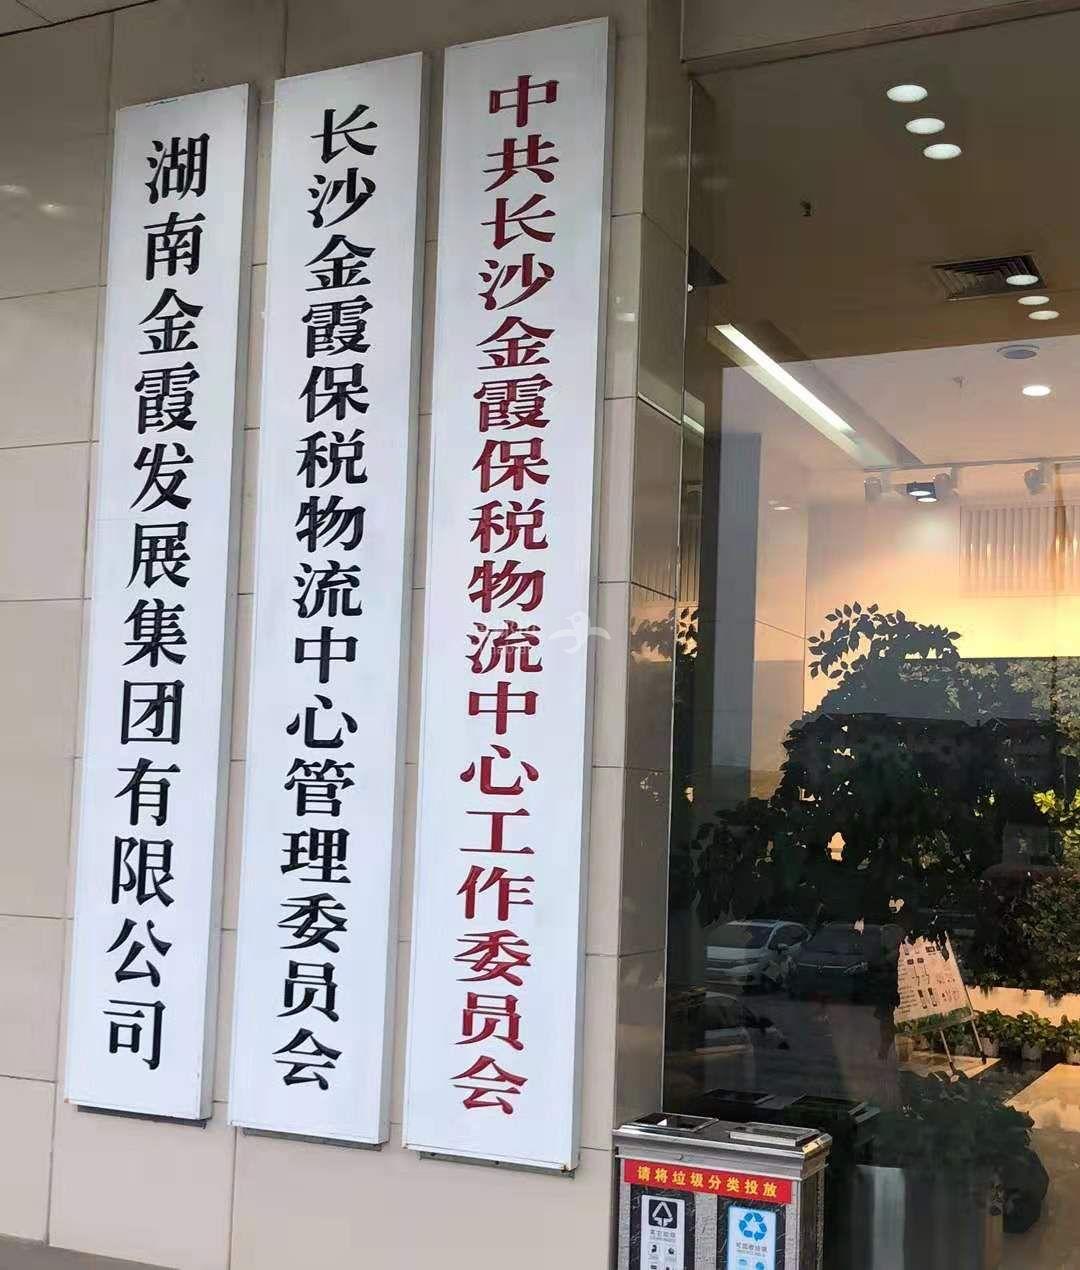 中共长沙金霞保税物流中心工作委员会
长沙金霞保税物流中心管理委员会
湖南金霞发展集团有限公司
请将垃圾分类投放
其它垃圾
可回收垃圾